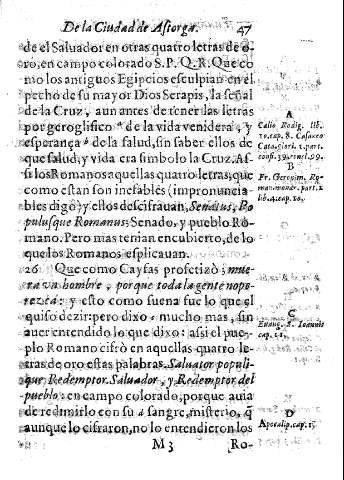 De la Ciudad de Astorga. 47
de el Salvador en otras quatro letras de o-
ro, en campo colorado S. P. Q. R. Que co
mo los antiguos Egipcios esculpian en el
pecho de su mayor Dios Serapis, la señal
de la Cruz, aun antes de tener las letras
por geroglifico A de la vida venidera, y
esperança B de la salud, sin saber ellos de
que salud, y vida era simbolo la Cruz. As-
si los Romanos aquellas quatro letras, que
como estan son inefables (impronuncia-
bles digo) y ellos descifrauan, Senatus, Po
pulusque Romanus; Senado, y pueblo Ro-
mano. Pero mas tenian encubierto, de lo
que los Romanos esplicauan.
26 Que como Cayfas profetizò; mue
ra vn hombre, porque toda la gente no pe-
rezca: y esto como suena fue lo que el
quiso dezir: pero dixo c mucho mas, sin
auer entendido lo que dixo: assi el pue-
plo Romano cifrò en aquellas quatro le-
tras de oro estas palabras. Salvator populi-
que Redemptor. Salvador, y Redemptor del
pueblo: en campo colorado, porque auia
de redimirlo con su d sangre, misterio, q̃
aunque lo cifraron, no lo entendieron los
M 3 Ro-
A
Celio Rodig. lib.
10. cap. 8. Casaneo
Cata. glori. 1. part.
consi. 39. concl. 99.
B
Fr. Geronim. Ro-
man. mondr. part. 2
lib. 4. cap. 10.
C
Euang. S. Ioannis
cap. 11.
D
Apocalip. cap. 15